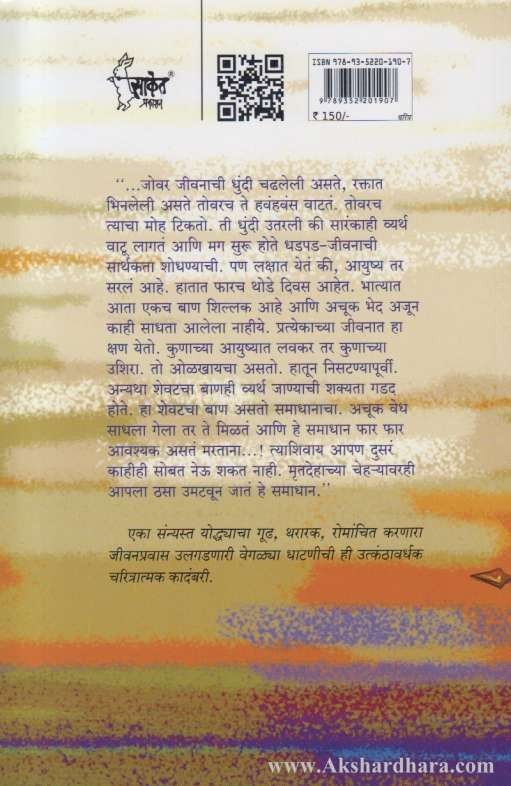 साकेत®
प्रकाशन
ISBN 978-93-5220-190-7
9 789352 201907
₹ 150/-
चरित्र
“...जोवर जीवनाची धुंदी चढलेली असते, रक्तात
भिनलेली असते तोवरच ते हवंहवंस वाटतं. तोवरच
त्याचा मोह टिकतो. ती धुंदी उतरली की सारंकाही व्यर्थ
वाटू लागतं आणि मग सुरू होते धडपड-जीवनाची
सार्थकता शोधण्याची. पण लक्षात येतं की, आयुष्य तर
सरलं आहे. हातात फारच थोडे दिवस आहेत. भात्यात
आता एकच बाण शिल्लक आहे आणि अचूक भेद अजून
काही साधता आलेला नाहीये. प्रत्येकाच्या जीवनात हा
क्षण येतो. कुणाच्या आयुष्यात लवकर तर कुणाच्या
उशिरा. तो ओळखायचा असतो. हातून निसटण्यापूर्वी.
अन्यथा शेवटचा बाणही व्यर्थ जाण्याची शक्यता गडद
होते. हा शेवटचा बाण असतो समाधानाचा. अचूक वेध
साधला गेला तर ते मिळतं आणि हे समाधान फार फार
आवश्यक असतं मरताना...! त्याशिवाय आपण दुसरं
काहीही सोबत नेऊ शकत नाही. मृतदेहाच्या चेहऱ्यावरही
आपला ठसा उमटवून जातं हे समाधान.”
एका संन्यस्त योद्ध्याचा गूढ, थरारक, रोमांचित करणारा
जीवनप्रवास उलगडणारी वेगळ्या धाटणीची ही उत्कंठावर्धक
चरित्रात्मक कादंबरी.
www.Akshardhara.com